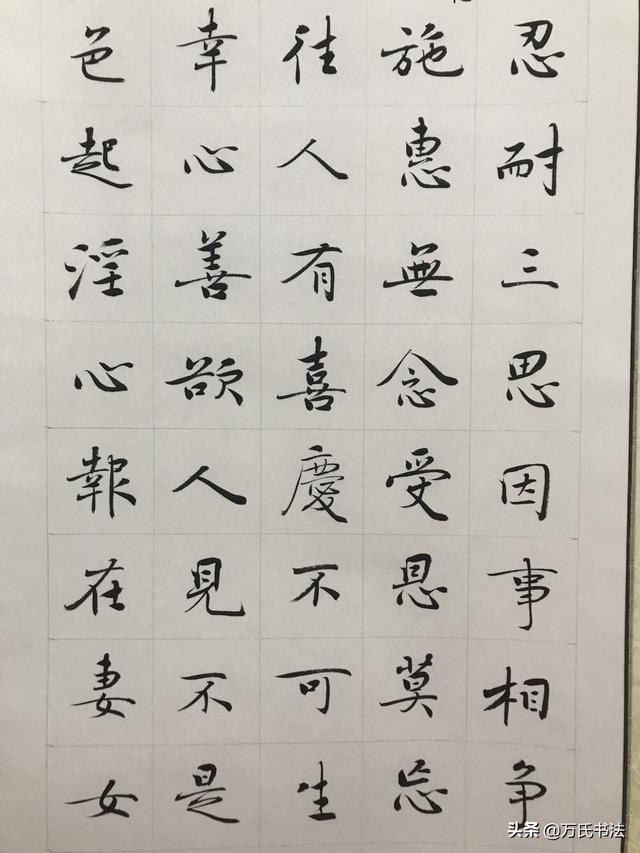 忍耐三思因事相争
施惠無念受恩莫忘
往人有喜慶不可生
幸心善欲人見不是
色起淫心報在妻女
头条 @万氏书法